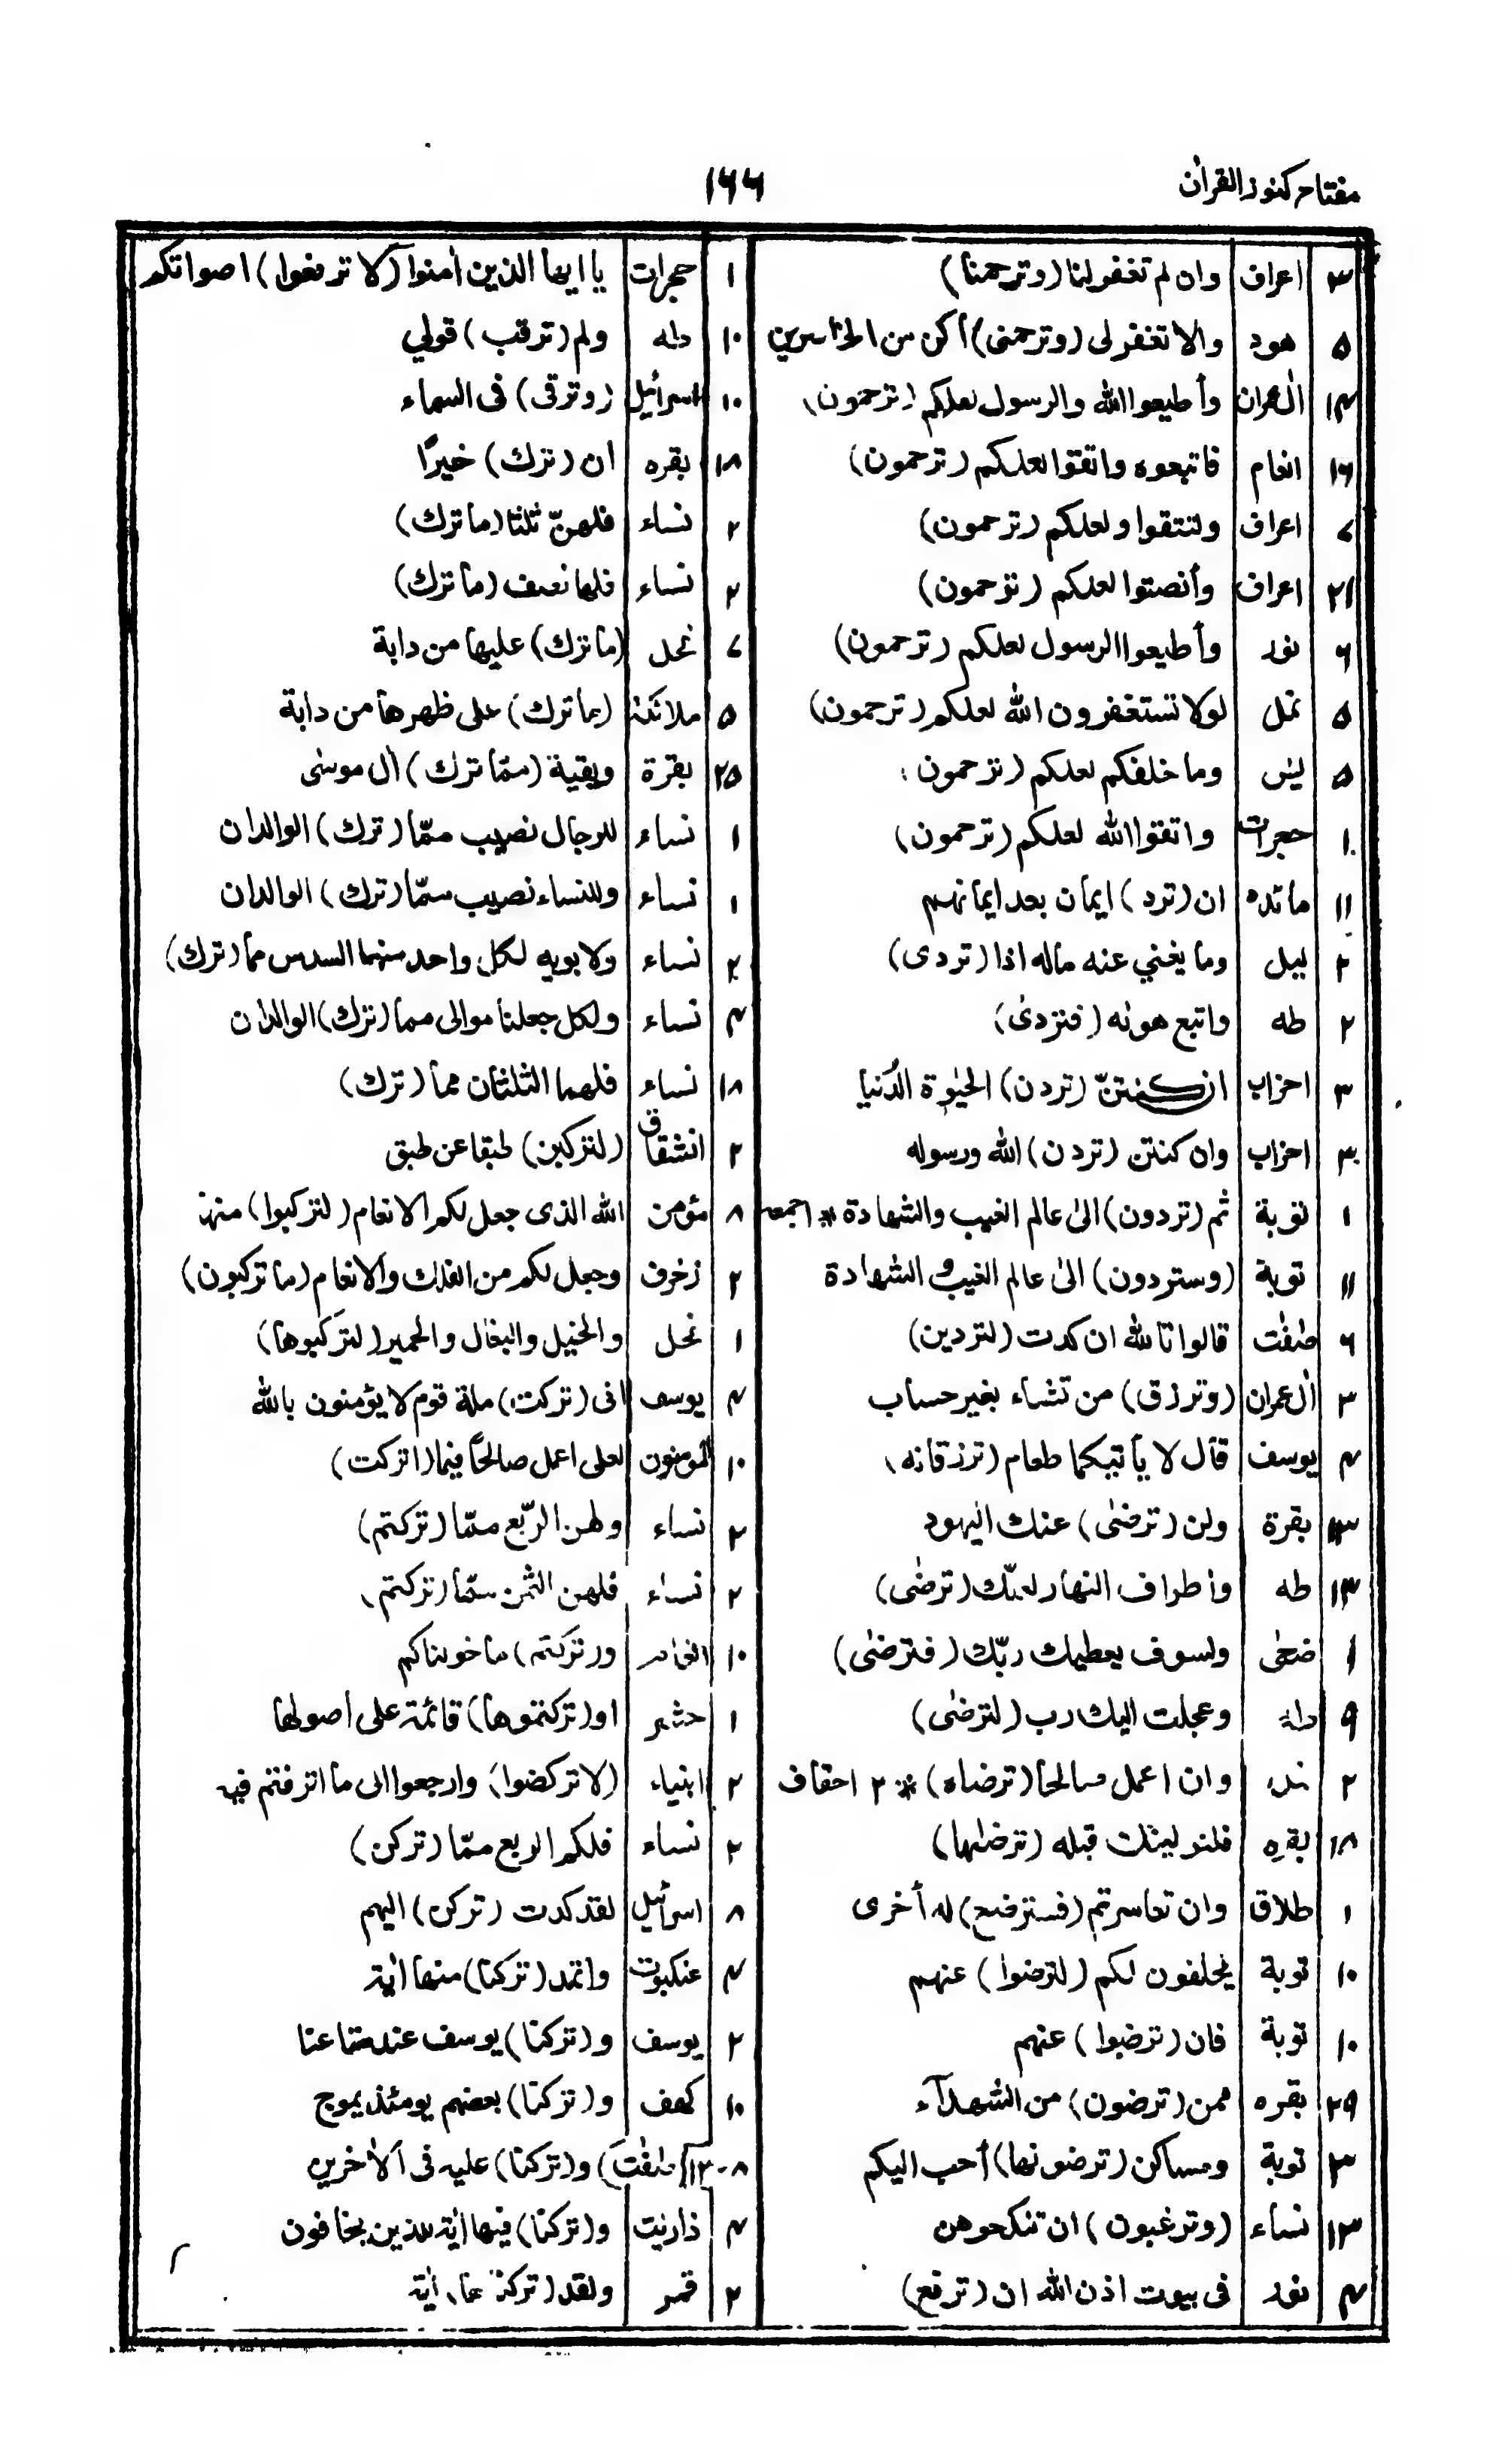 مفتاح کنوز القرآن
۱۶۶
۳ اعراف وان لم تغفر لنا (وترحمنا)
۵ هود والا تغفر لی (وترحمنی) أکن من الخاسرین
۱۴ اٰل عمران وأطیعوا الله والرسول لعلکم (ترحمون)
۱۶ انعام فاتبعوه واتقوا لعلکم (ترحمون)
۷ اعراف ولتتقوا ولعلکم (ترحمون)
۲۱ اعراف وأنصتوا لعلکم (ترحمون)
۶ نور وأطیعوا الرسول لعلکم (ترحمون)
۵ نمل لولا تستغفرون الله لعلکم (ترحمون)
۵ یٰس وما خلفکم لعلکم (ترحمون)
۱ حجرات واتقوا الله لعلکم (ترحمون)
۱۱ مائده ان (ترد) ایمان بعد ایمانهم
۲ لیل وما یغنی عنه ماله اذا (تردی)
۲ طه واتبع هوٰه (فتردیٰ)
۳ احزاب ان کنتنّ (تردن) الحیٰوة الدّنیا
۳ احزاب وان کنتن (تردن) الله ورسوله
۱ توبة ثم (تردون) الیٰ عالم الغیب والشهادة * ۱ جمعه
۱۱ توبة (وستردون) الیٰ عالم الغیب و الشهادة
۶ صٰفّٰت قالوا تالله ان کدت (لتردین)
۳ اٰل عمران (وترزق) من تشاء بغیر حساب
۴ یوسف قال لا یأتیکما طعام (ترزقانه)
۱۳ بقرة ولن (ترضیٰ) عنك الیهود
۱۳ طه واطراف النهار لعلّك (ترضٰی)
۱ ضحیٰ ولسوف یعطیك ربّك (فترضٰی)
۹ طه وعجلت الیك رب (لترضٰی)
۲ نمل وان اعمل صالحا (ترضاه) * ۲ احقاف
۱۸ بقره فلنولینك قبله (ترضٰها)
۱ طلاق وان تعاسرتم (فسترضع) له أخری
۱۰ توبة یحلفون لکم (لترضوا) عنهم
۱۰ توبة فان (ترضوا) عنهم
۲۹ بقره ممن (ترضون) من الشهدآء
۳ توبة ومساکن (ترضونها) أحب الیکم
۱۳ نساء (وترغبون) ان تنکحوهن
۴ نور فی بیوت اذن الله ان (ترفع)
۱ حجرات یا ایها الذین اٰمنوا (لا ترفعوا) اصواتکم
۱۰ طه ولم (ترقب) قولی
۱۰ اسرائیل (وترقی) فی السماء
۱۸ بقره ان (ترك) خیرًا
۲ نساء فلهنّ ثلثا (ما ترك)
۲ نساء فلها نصف (ما ترك)
۷ نحل (ما ترك) علیها من دابة
۵ ملائکة (ما ترك) علی ظهرها من دابة
۲۵ بقرة وبقیة (ممّا ترك) اٰل موسٰی
۱ نساء للرجال نصیب ممّا (ترك) الوالدان
۱ نساء وللنساء نصیب ممّا (ترك) الوالدان
۲ نساء ولابویه لکل واحد منهما السدس مما (ترك)
۴ نساء ولکل جعلنا موالی مما (ترك) الوالدان
۱۸ نساء فلهما الثلثان مما (ترك)
۲ انشقاق (لترکبن) طبقا عن طبق
۸ مؤمن الله الذی جعل لکم الانعام (لترکبوا) منها
۲ زخرف وجعل لکم من الفلك والانعام (ما ترکبون)
۱ نحل والخیل والبغال والحمیر (لترکبوها)
۴ یوسف انی (ترکت) ملة قوم لا یؤمنون بالله
۱۰ المؤمنون لعلی اعمل صالحًا فیما (ترکت)
۲ نساء ولهن الرّبع ممّا (ترکتم)
۲ نساء فلهن الثمن ممّا (ترکتم)
۱۰ انعام و(ترکتم) ما خولناکم
۱ حشر او (ترکتموها) قائمة علی اصولها
۲ انبیاء (لا ترکضوا) وارجعوا الی ما اترفتم فیه
۲ نساء فلکم الربع ممّا (ترکن)
۸ اسرائیل لقد کدت (ترکن) الیهم
۴ عنکبوت ولقد (ترکنا) منها اٰیة
۲ یوسف و(ترکنا) یوسف عند متاعنا
۱۰ کهف و(ترکنا) بعضهم یومئذ یموج
۱۳-۸ (صٰفّٰت) و(ترکنا) علیه فی الاٰخرین
۴ ذاریٰت و(ترکنا) فیها اٰیة للذین یخافون
۲ قمر ولقد (ترکنٰها) اٰیة